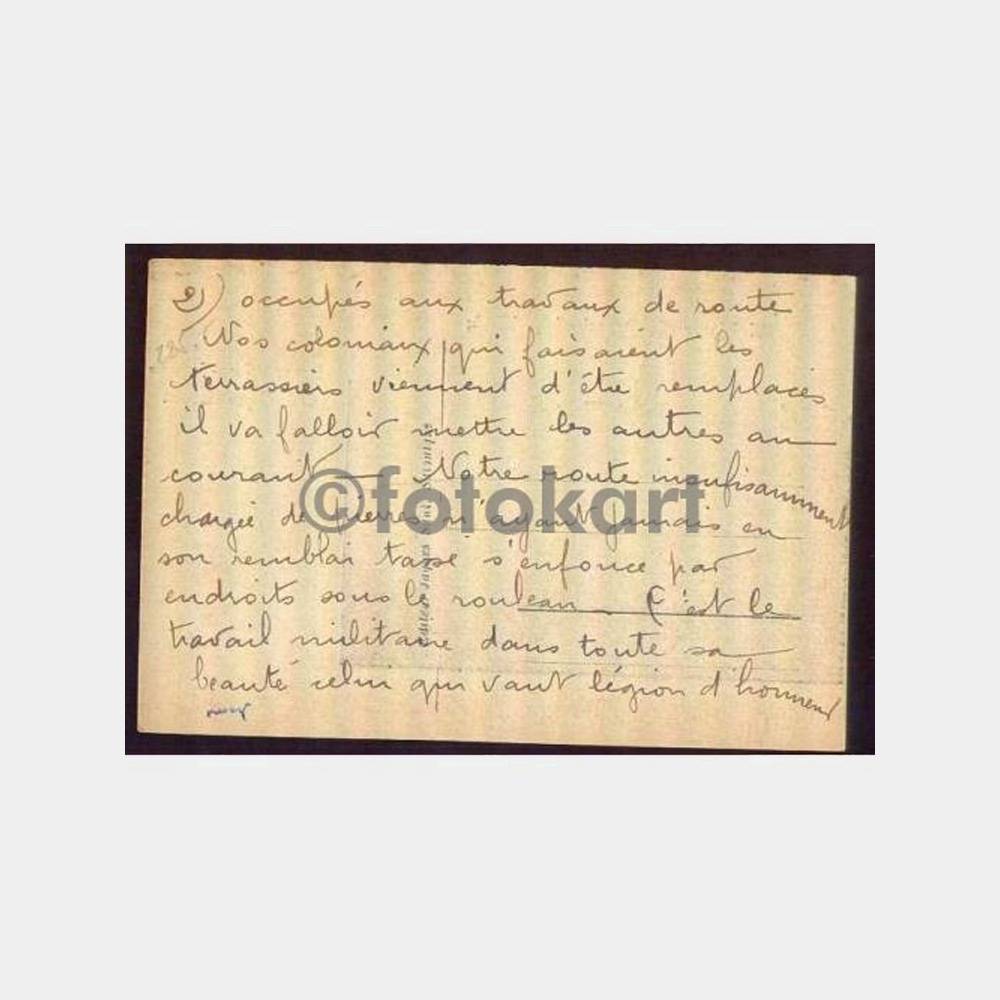 2) occupés aux travaux de route
Nos coloniaux qui faisaient les
terrassiers viennent d'être remplacés
il va falloir mettre les autres au
courant — Notre route insufisamment
chargée de pierres n'ayant jamais eu
son remblai tassé s'enfonce par
endroits sous le rouleau C'est le
travail militaire dans toute sa
beauté celui qui vaut légion d'honneur
©fotokart